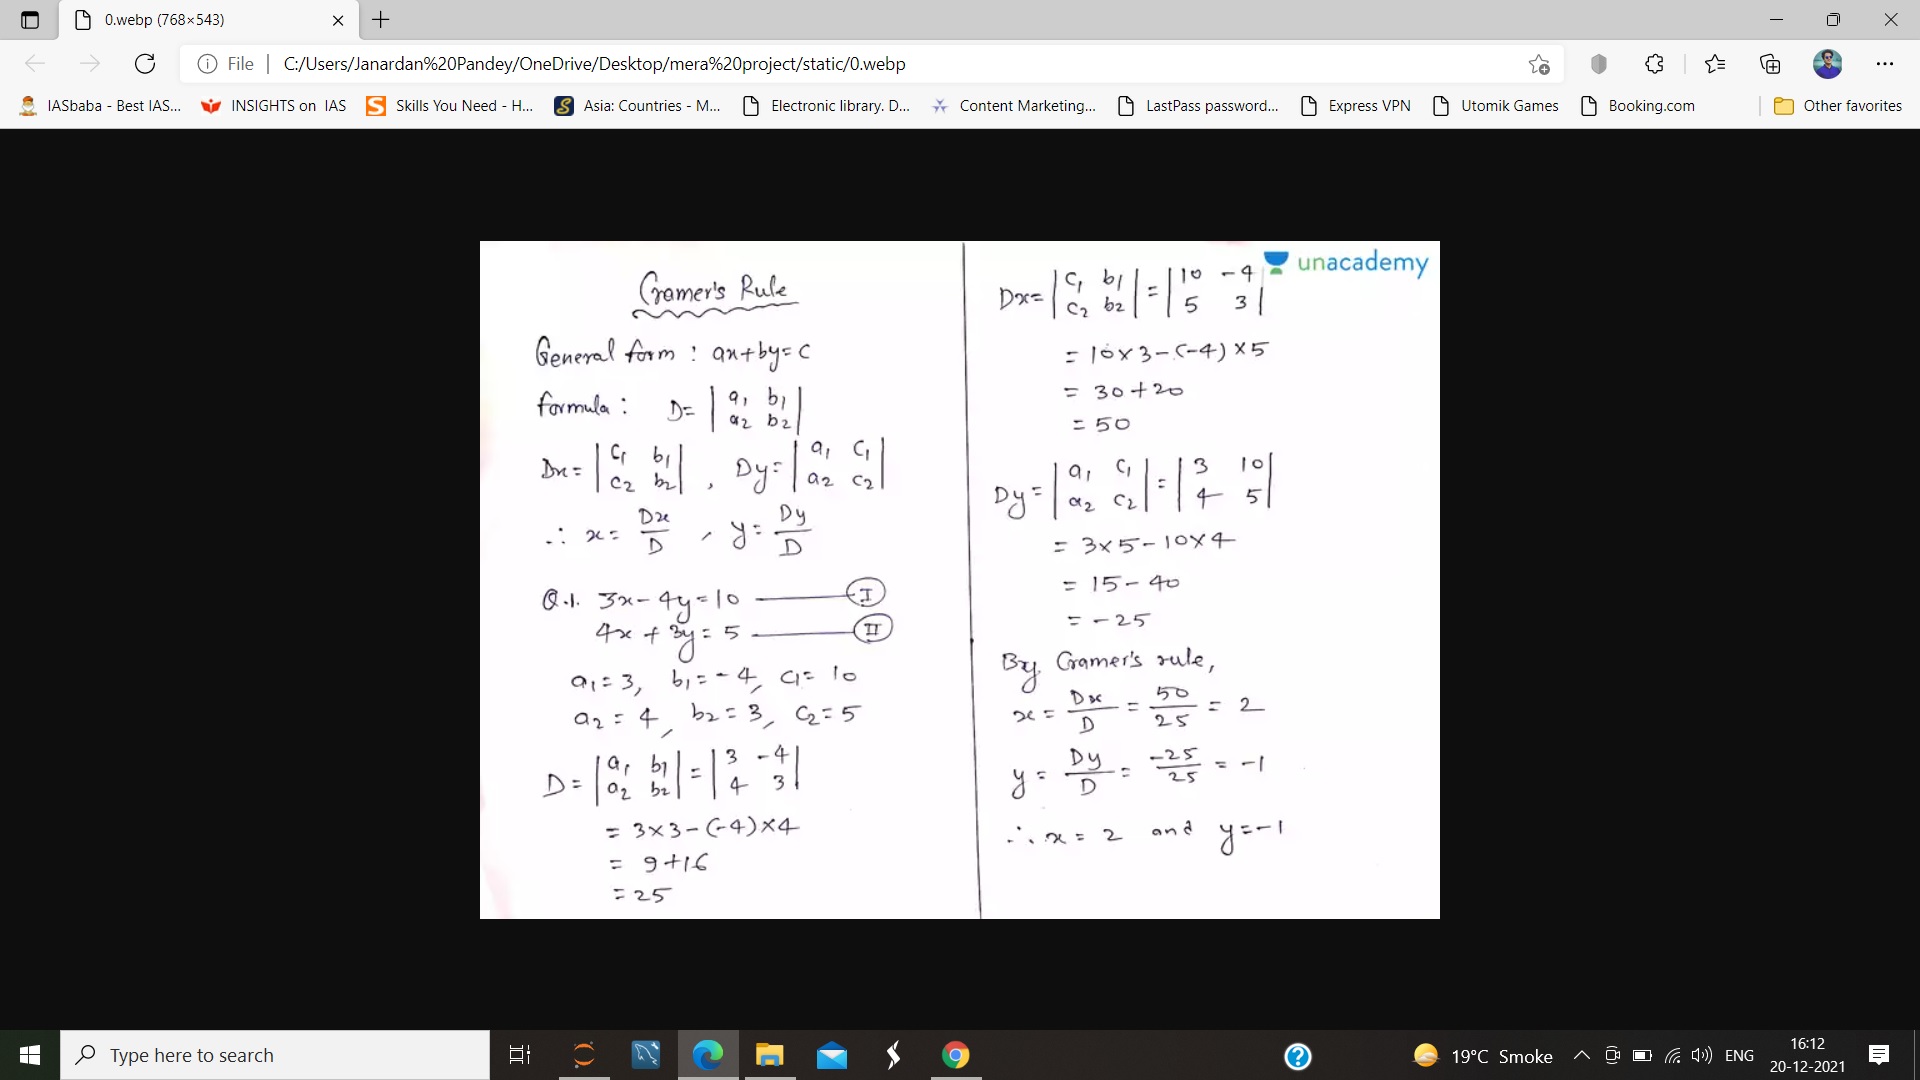 0.webp (768×543)
File
C:/Users/Janardan%20Pandey/OneDrive/Desktop/mera%20project/static/0.webp
IASbaba - Best IAS...
INSIGHTS on IAS
Skills You Need - H...
Asia: Countries - M...
Electronic library. D...
Content Marketing...
LastPass password...
Express VPN
Utomik Games
Booking.com
Other favorites
Cramer's Rule
General form : ax+by=c
formula : D= | a1 b1 |
| a2 b2 |
Dx= | c1 b1 | , Dy= | a1 c1 |
| c2 b2 | | a2 c2 |
∴ x= Dx/D , y= Dy/D
Q.1. 3x-4y=10 —— I
4x+3y=5 —— II
a1=3, b1=-4, c1=10
a2=4, b2=3, c2=5
D= | a1 b1 | = | 3 -4 |
| a2 b2 | | 4 3 |
= 3×3-(-4)×4
= 9+16
= 25
unacademy
Dx= | c1 b1 | = | 10 -4 |
| c2 b2 | | 5 3 |
= 10×3-(-4)×5
= 30+20
= 50
Dy= | a1 c1 | = | 3 10 |
| a2 c2 | | 4 5 |
= 3×5-10×4
= 15-40
= -25
By Cramer's rule,
x = Dx/D = 50/25 = 2
y = Dy/D = -25/25 = -1
∴ x = 2 and y=-1
Type here to search
19°C Smoke
ENG
16:12
20-12-2021